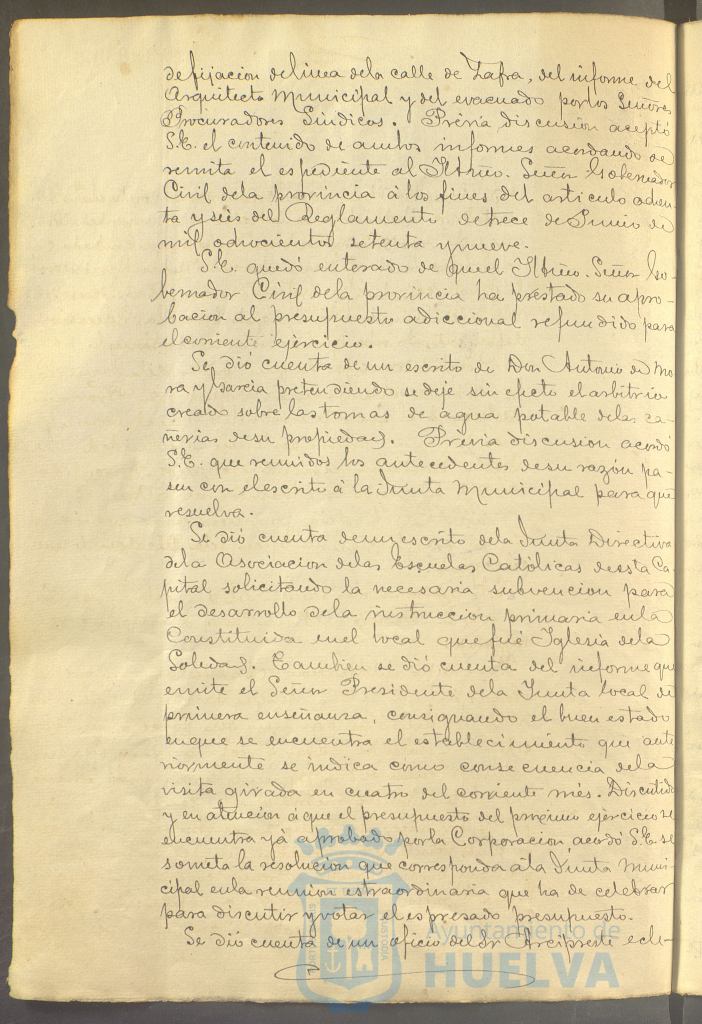 de fijacion de linea de la calle de Zafra, del informe del
Arquitecto Municipal y del evacuado por los Señores
Procuradores Síndicos. Prévia discusion aceptó
S.E. el contenido de ambos informes acordando se
remita el espediente al Iltmo. Señor Gobernador
Civil de la provincia á los fines del articulo ochen-
ta y seis del Reglamento de trece de Junio de
mil ochocientos setenta y nueve.
S.E. quedó enterado de que el Iltmo. Señor Go-
bernador Civil de la provincia ha prestado su apro-
bacion al presupuesto adiccional refundido para
el corriente ejercicio.
Se dió cuenta de un escrito de Don Antonio de Mo
ra y Garcia pretendiendo se deje sin efecto el arbitrio
creado sobre las tomas de agua potable de las ca-
ñerias de su propiedad. Prévia discusion acordó
S.E. que reunidos los antecedentes de su razón pa-
sen con el escrito á la Junta Municipal para que
resuelva.
Se dió cuenta de un escrito de la Junta Directiva
de la Asociacion de las Escuelas Católicas de esta Ca-
pital solicitando la necesaria subvencion para
el desarrollo de la instruccion primaria en la
Constituida en el local que fué Iglesia de la
Soledad. Tambien se dió cuenta del informe que
emite el Señor Presidente de la Junta local de
primera enseñanza, consignando el buen estado
en que se encuentra el establecimiento que ante
riormente se indica como consecuencia de la
visita girada en cuatro del corriente més. Discutido
y en atencion á que el presupuesto del próximo ejercicio se
encuentra yá aprobado por la Corporacion, acordó S.E. se
someta la resolucion que corresponda á la Junta Muni-
cipal en la reunion estraordinaria que ha de celebrar
para discutir y votar el espresado presupuesto.
Se dió cuenta de un oficio del Sr Arcipreste ecle-
Ayuntamiento de
HUELVA